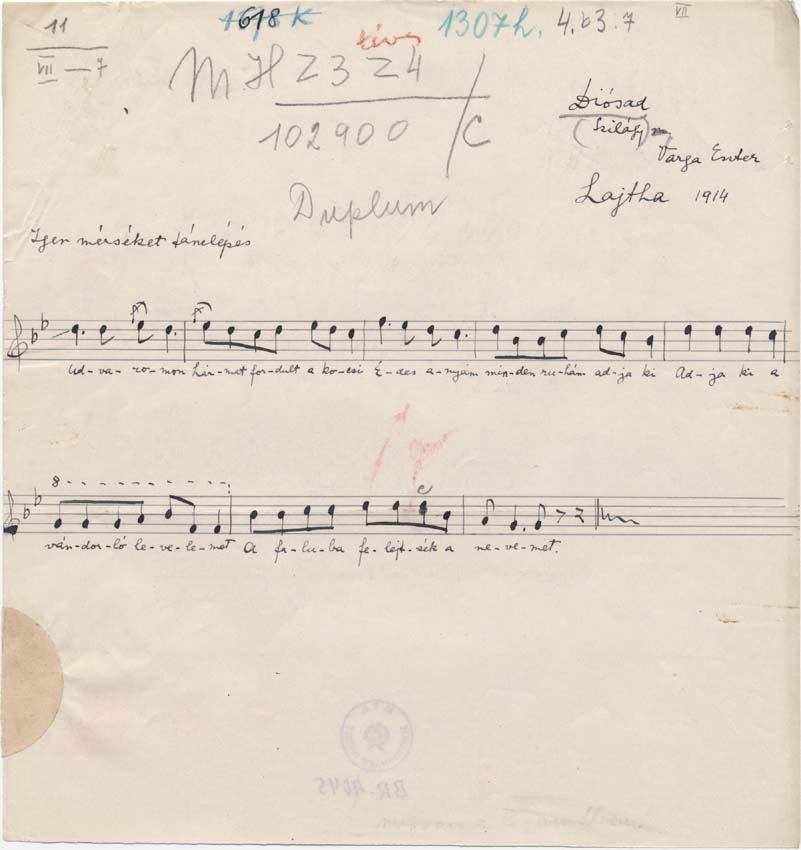 11
VII — 7
618 K
téves
1307h.
4.b3.7
VII
M.H 2324
102900 /C
Duplum
Diósad
(Szilágy) m,
Varga Eszter
Lajtha 1914
Igen mérséket tánclépés
Ud-va-ro-mon hár-mat for-dult a ko-csi É-des a-nyám min-den ru-hám ad-ja ki Ad-ja ki a
8
c
ván-dor-ló le-ve-le-met A fa-lu-ba fe-lejt-sék a ne-ve-met.
BR-4045